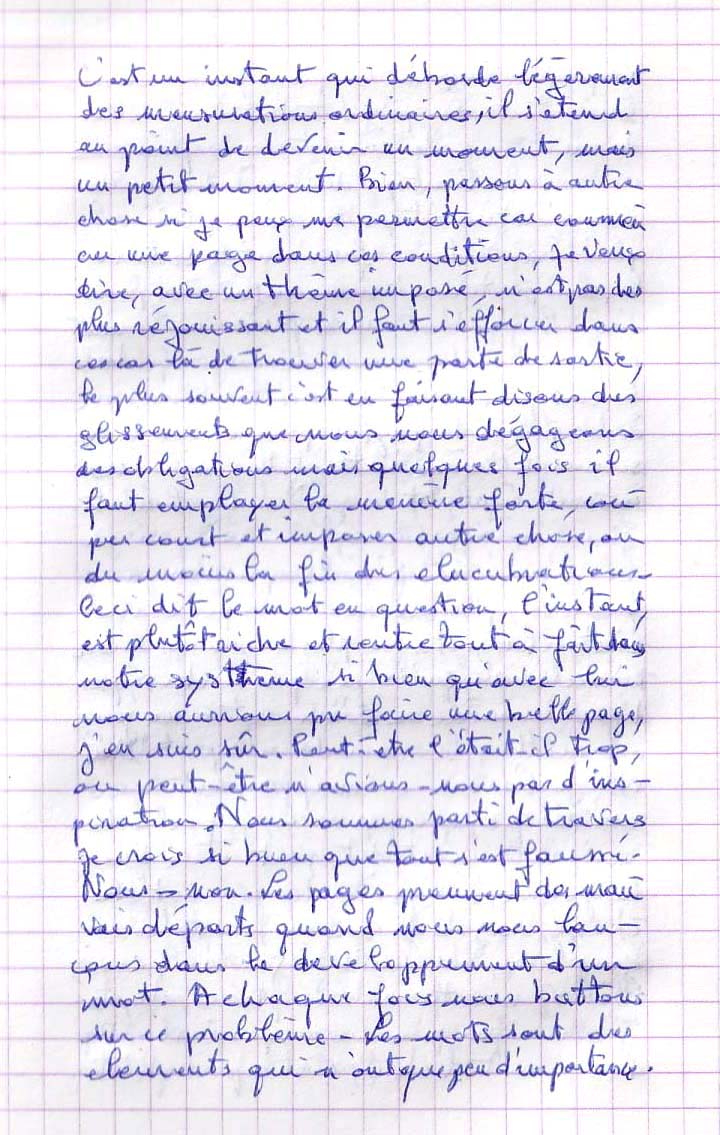 C'est un instant qui déborde légèrement
des mensurations ordinaires, il s'etend
au point de devenir un moment, mais
un petit moment. Bien, passons à autre
chose si je peux me permettre car commen
cer une page dans ces conditions, je veux
dire, avec un thème imposé, n'est pas des
plus réjouissant et il faut s'efforcer dans
ces cas là de trouver une porte de sortie,
le plus souvent c'est en faisant disons des
glissements que nous nous dégageons
des obligations mais quelques fois il
faut employer la manière forte, cou
per court et imposer autre chose, ou
du moins la fin des elucubrations.
Ceci dit le mot en question, l'instant,
est plutôt riche et rentre tout à fait dans
notre systheme si bien qu'avec lui
nous aurions pu faire une belle page,
j'en suis sûr. Peut-etre l'était-il trop,
ou peut-être n'avions-nous pas d'ins-
piration. Nous sommes parti de travers
je crois si bien que tout s'est
Nous - non. Les pages prennent des mau
vais départs quand nous nous lan-
çons dans le developpement d'un
mot. A chaque fois nous buttons
sur ce problème - Les mots sont des
elements qui n'ont que peu d'importance.